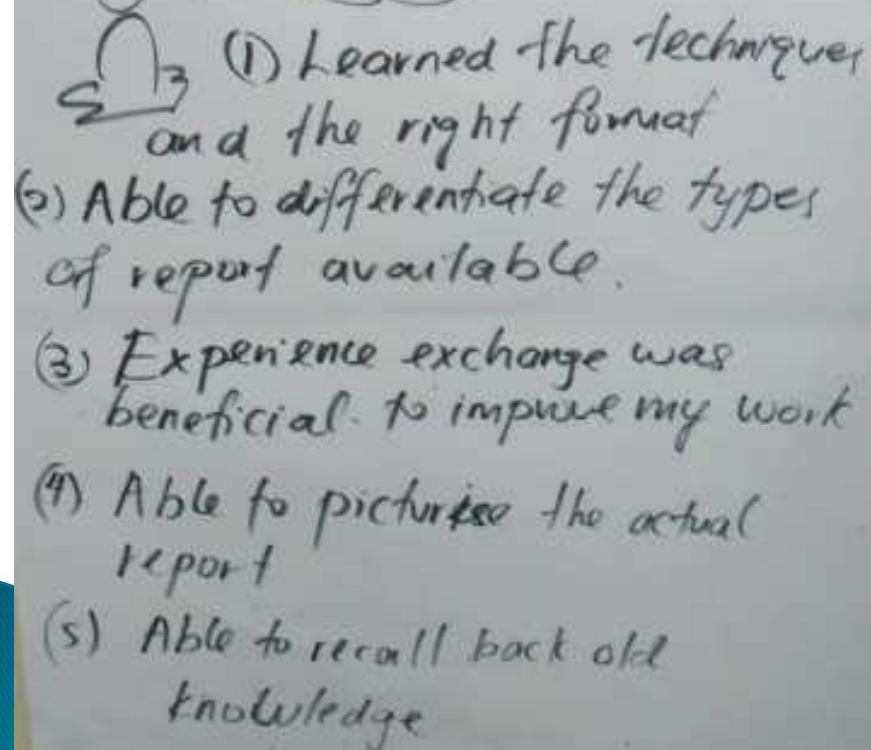 (1) Learned the techniques
and the right format
(2) Able to differentiate the types
of report available.
(3) Experience exchange was
beneficial. to improve my work
(4) Able to picturise the actual
report
(5) Able to recall back old
knowledge